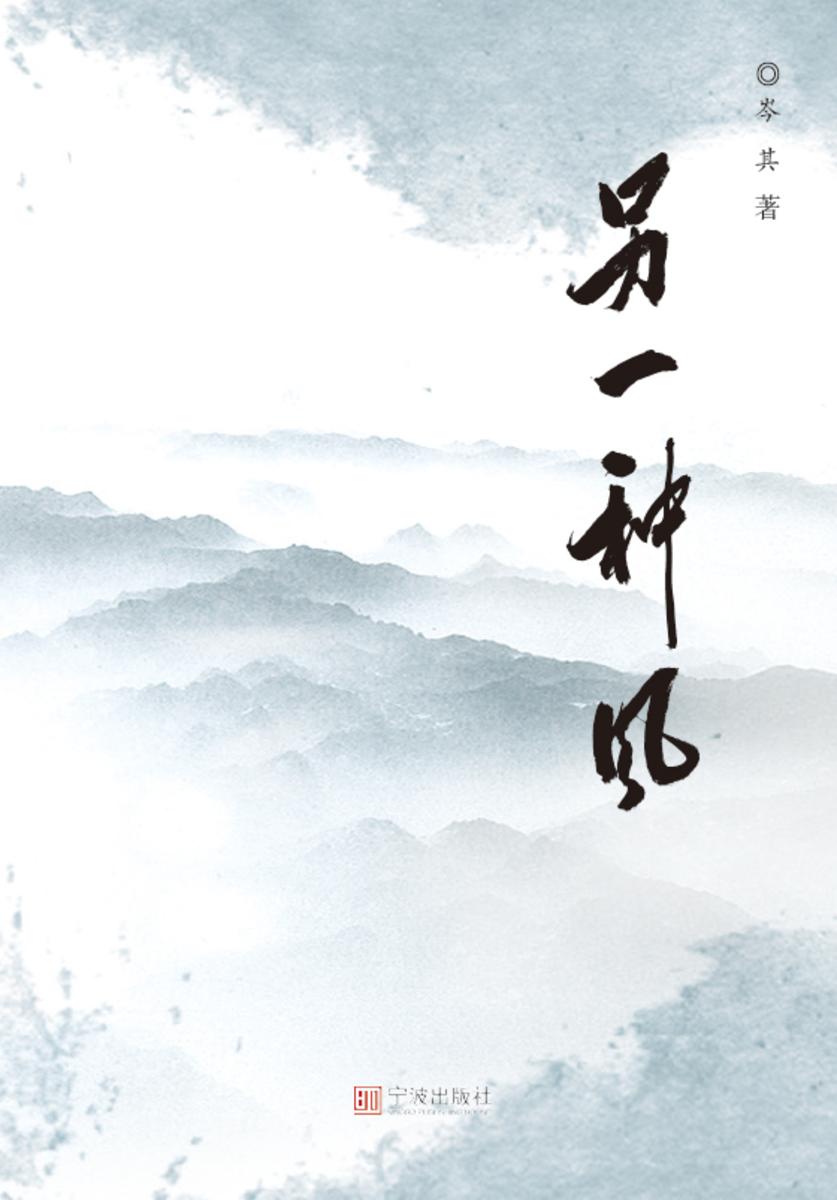 ◎岑其著
另一种风
宁波出版社
NINGBO PUBLISHING HOUSE